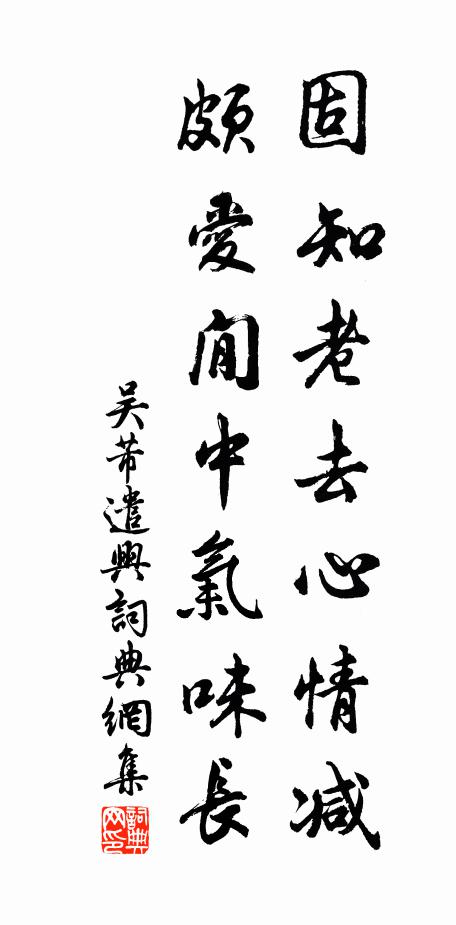 固知老去心情减
頗愛閒中氣味長
吴芾遣興詞典網集
詞典網印